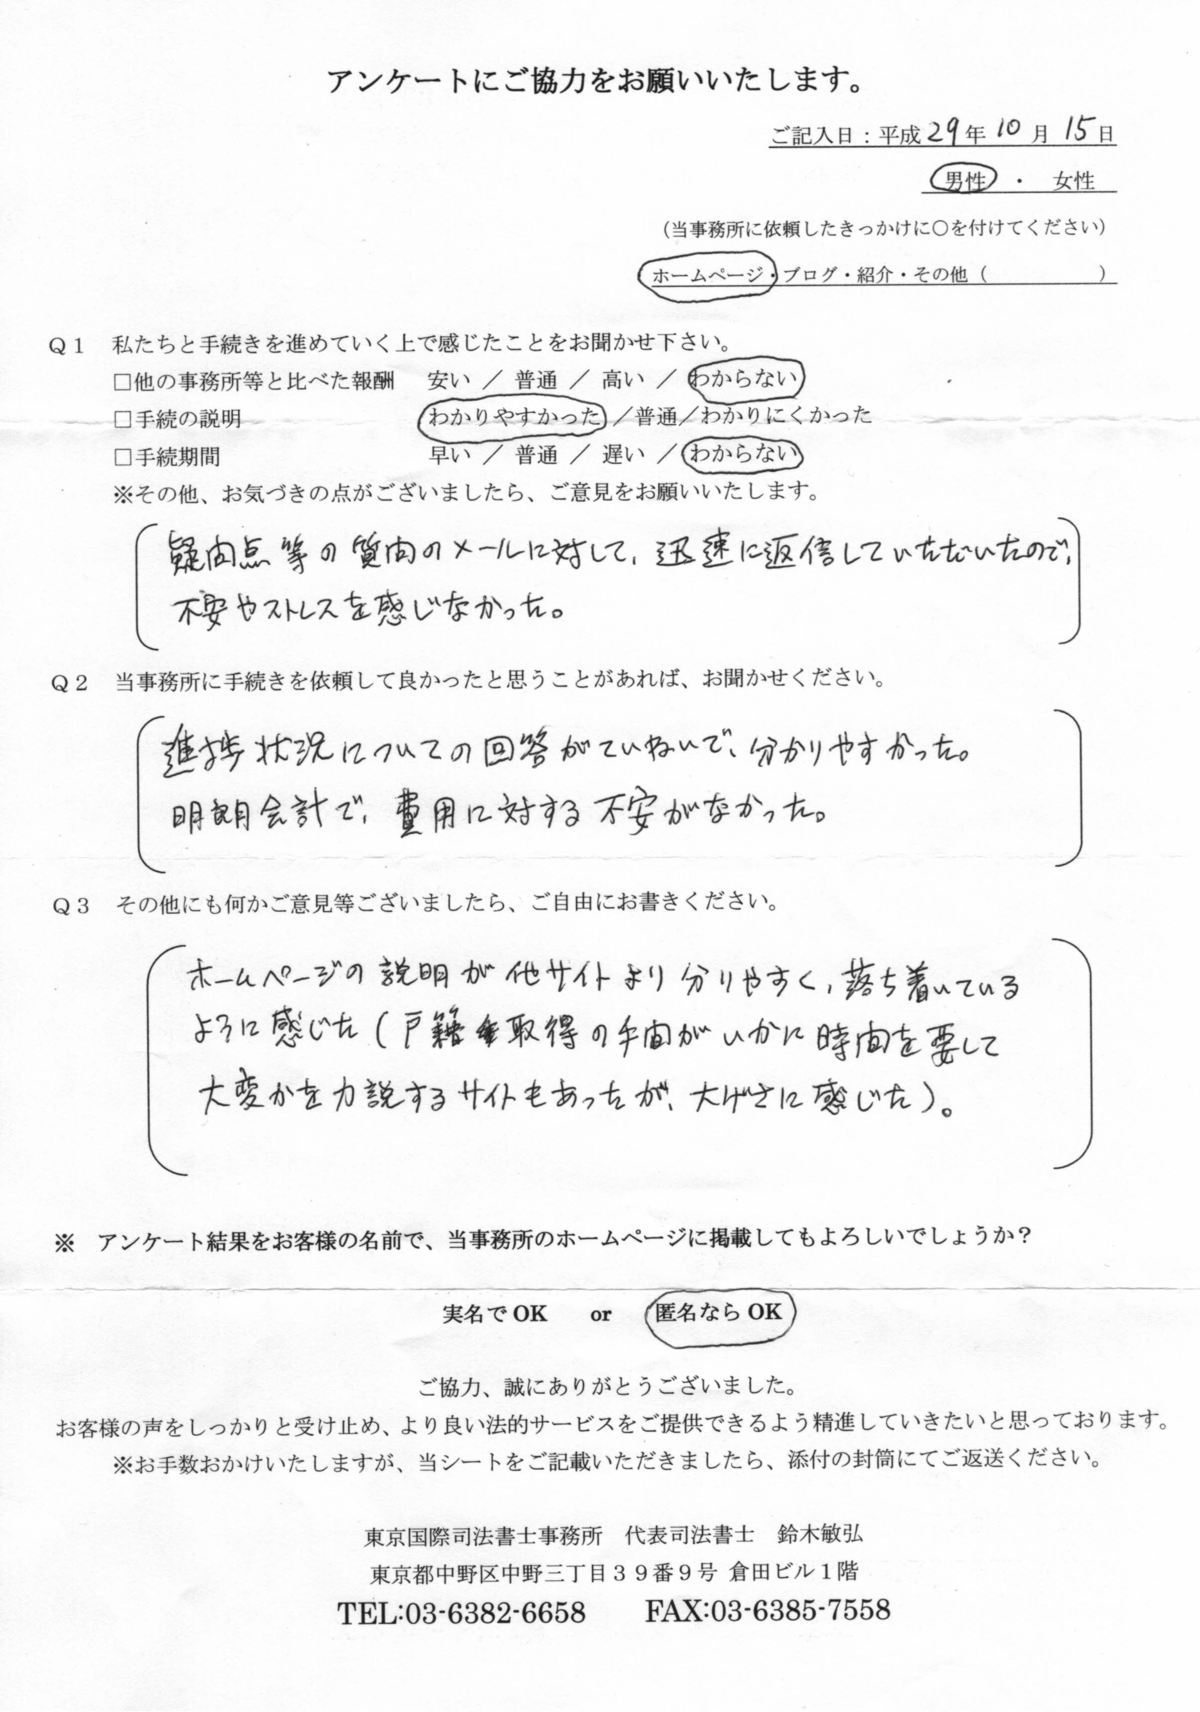 アンケートにご協力をお願いいたします。
ご記入日：平成29年10月15日
男性 ・ 女性
（当事務所に依頼したきっかけに○を付けてください）
ホームページ・ブログ・紹介・その他（　　　　　）
Ｑ１　私たちと手続きを進めていく上で感じたことをお聞かせ下さい。
□他の事務所等と比べた報酬　安い ／ 普通 ／ 高い ／ わからない
□手続の説明　わかりやすかった ／普通／わかりにくかった
□手続期間　早い ／ 普通 ／ 遅い ／ わからない
※その他、お気づきの点がございましたら、ご意見をお願いいたします。
疑問点等の質問のメールに対して、迅速に返信していただいたので、
不安やストレスを感じなかった。
Ｑ２　当事務所に手続きを依頼して良かったと思うことがあれば、お聞かせください。
進捗状況についての回答がていねいで、分かりやすかった。
明朗会計で、費用に対する不安がなかった。
Ｑ３　その他にも何かご意見等ございましたら、ご自由にお書きください。
ホームページの説明が他サイトより分りやすく、落ち着いている
ように感じた（戸籍取得の手間がいかに時間を要して
大変かを力説するサイトもあったが、大げさに感じた）。
※　アンケート結果をお客様の名前で、当事務所のホームページに掲載してもよろしいでしょうか？
実名で OK　or　匿名なら OK
ご協力、誠にありがとうございました。
お客様の声をしっかりと受け止め、より良い法的サービスをご提供できるよう精進していきたいと思っております。
※お手数おかけいたしますが、当シートをご記載いただきましたら、添付の封筒にてご返送ください。
東京国際司法書士事務所　代表司法書士　鈴木敏弘
東京都中野区中野三丁目３９番９号 倉田ビル１階
TEL:03-6382-6658　FAX:03-6385-7558